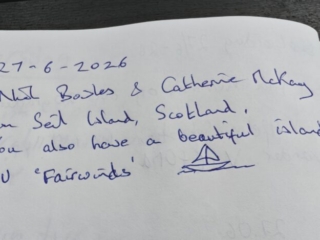 27-6-2026
& Catherine McKay
Seil Island, Scotland,
also have a beautiful island
'Fairwinds'